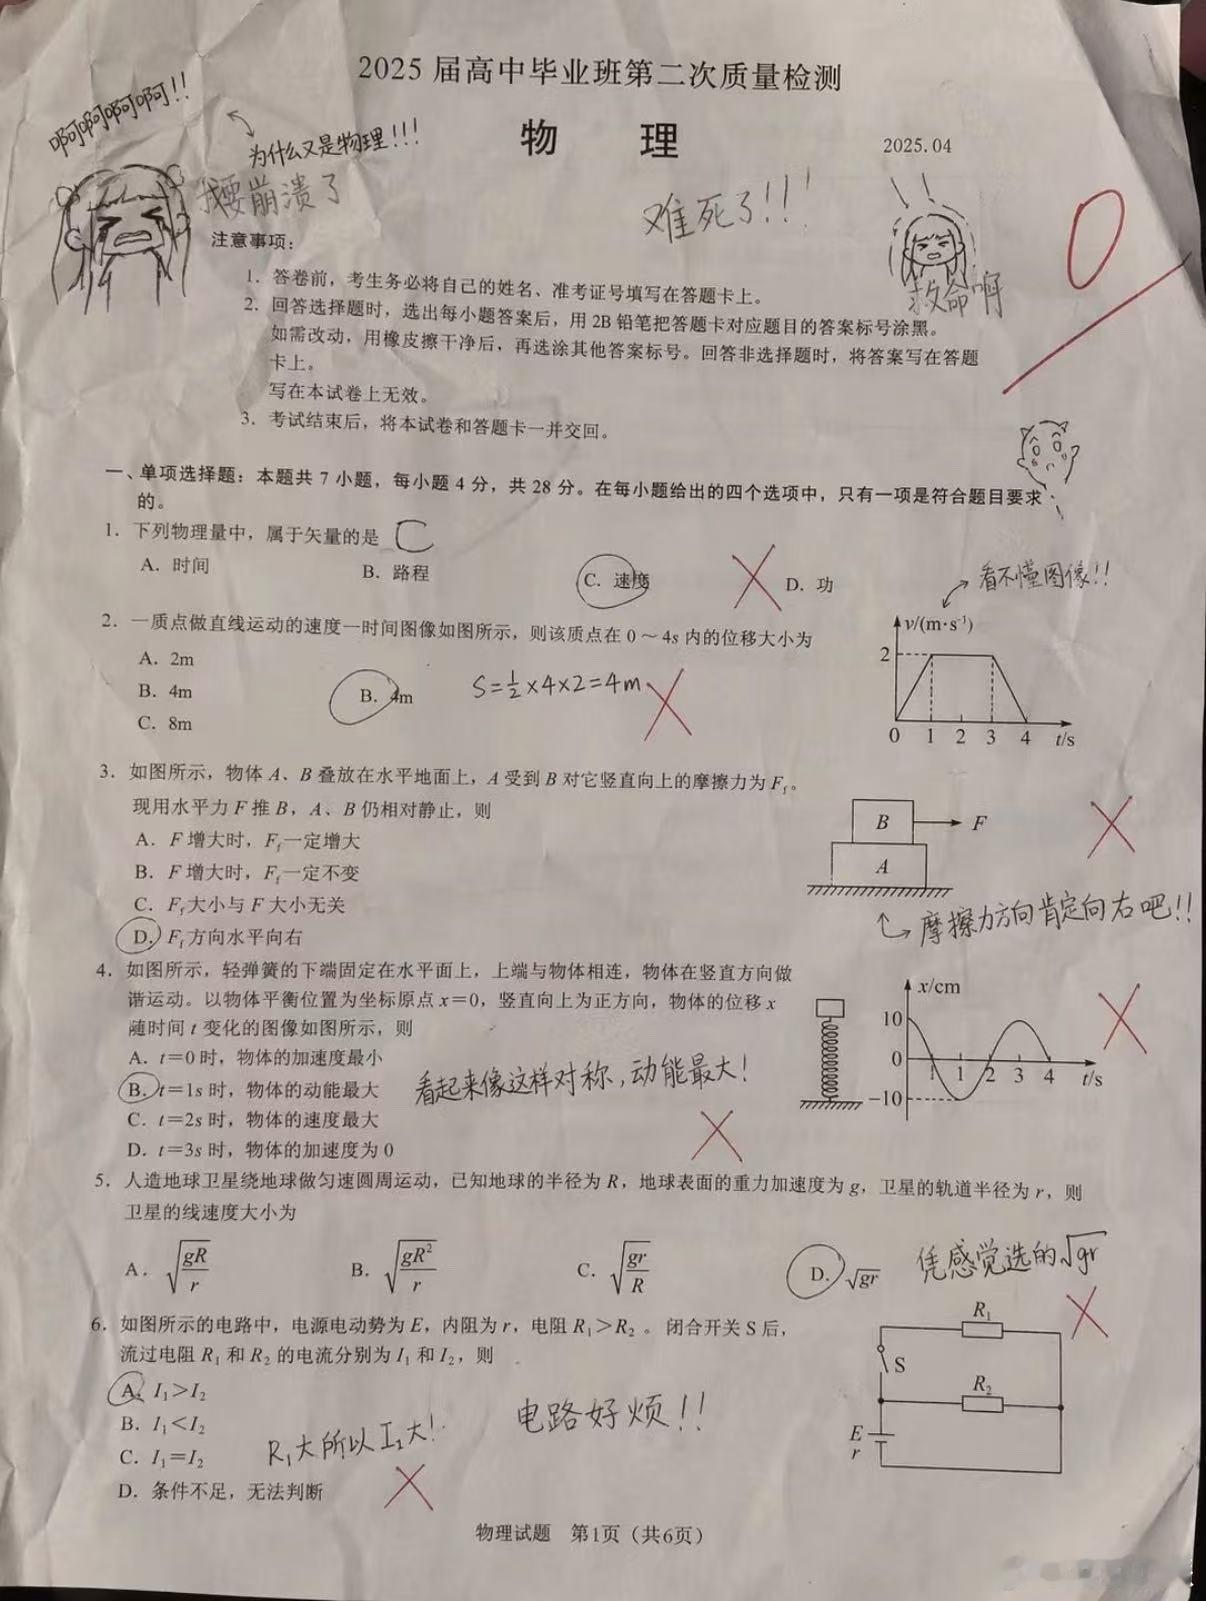 2025 届高中毕业班第二次质量检测
物 理
2025.04
啊啊啊啊啊!!
为什么又是物理!!!
我要崩溃了
难死了!!!
救命啊
0
注意事项：
1. 答卷前，考生务必将自己的姓名、准考证号填写在答题卡上。
2. 回答选择题时，选出每小题答案后，用 2B 铅笔把答题卡对应题目的答案标号涂黑。
如需改动，用橡皮擦干净后，再选涂其他答案标号。回答非选择题时，将答案写在答题
卡上。
写在本试卷上无效。
3. 考试结束后，将本试卷和答题卡一并交回。
一、单项选择题：本题共 7 小题，每小题 4 分，共 28 分。在每小题给出的四个选项中，只有一项是符合题目要求
的。
1. 下列物理量中，属于矢量的是 C
A. 时间 B. 路程 C. 速度 D. 功
2. 一质点做直线运动的速度一时间图像如图所示，则该质点在 0～4s 内的位移大小为
A. 2m
B. 4m B. 4m S=½×4×2=4m
C. 8m
看不懂图像!!
v/(m·s⁻¹)
2
0 1 2 3 4 t/s
3. 如图所示，物体 A、B 叠放在水平地面上，A 受到 B 对它竖直向上的摩擦力为 F_f。
现用水平力 F 推 B，A、B 仍相对静止，则
A. F 增大时，F_f 一定增大
B. F 增大时，F_f 一定不变
C. F_f 大小与 F 大小无关
D. F_f 方向水平向右
B F
A
摩擦力方向肯定向右吧!!
4. 如图所示，轻弹簧的下端固定在水平面上，上端与物体相连，物体在竖直方向做
谐运动。以物体平衡位置为坐标原点 x=0，竖直向上为正方向，物体的位移 x
随时间 t 变化的图像如图所示，则
A. t=0 时，物体的加速度最小
B. t=1s 时，物体的动能最大
C. t=2s 时，物体的速度最大
D. t=3s 时，物体的加速度为 0
看起来像这样对称，动能最大!
x/cm
10
0 1 1 2 3 4 t/s
-10
5. 人造地球卫星绕地球做匀速圆周运动，已知地球的半径为 R，地球表面的重力加速度为 g，卫星的轨道半径为 r，则
卫星的线速度大小为
A. √(gR/r) B. √(gR²/r) C. √(gr/R) D. √gr
凭感觉选的√gr
6. 如图所示的电路中，电源电动势为 E，内阻为 r，电阻 R₁>R₂ 。闭合开关 S 后，
流过电阻 R₁ 和 R₂ 的电流分别为 I₁ 和 I₂，则
A. I₁>I₂
B. I₁<I₂
C. I₁=I₂
D. 条件不足，无法判断
电路好烦!!
R₁
S
R₂
E
r
物理试题 第1页（共6页）